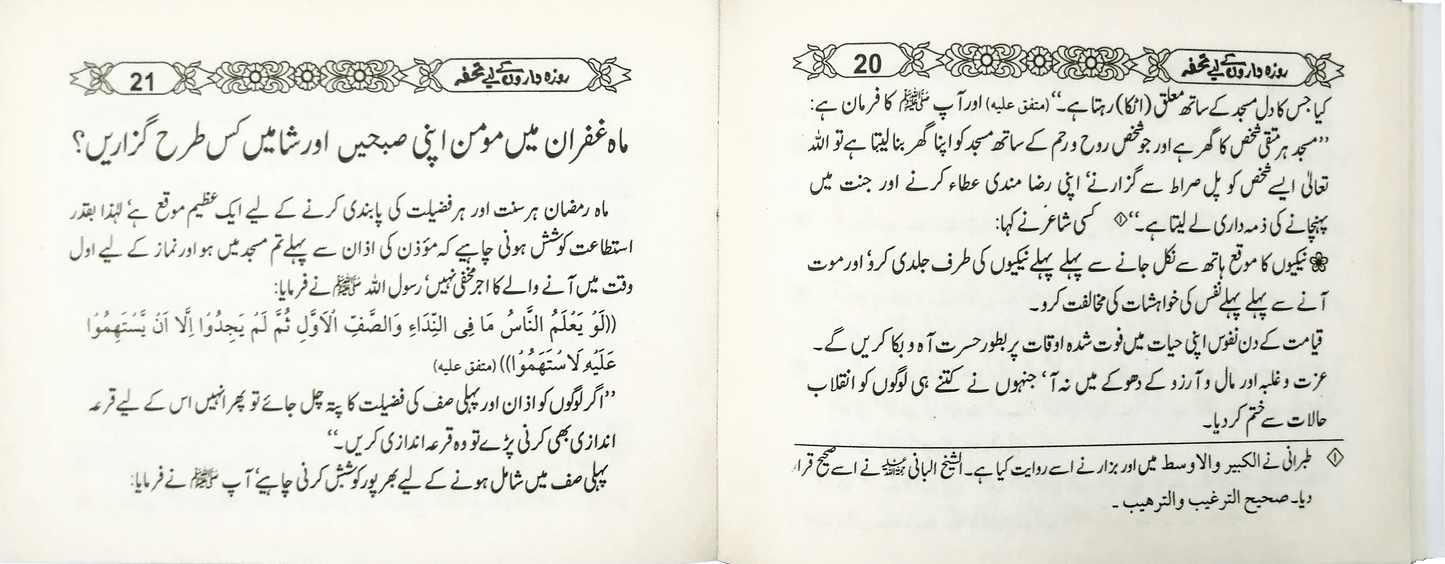 روزہ داروں کے لیے تحفہ 20
کیا جس کا دل مسجد کے ساتھ معلق (اٹکا) رہتا ہے۔‘‘ (متفق عليه) اور آپ ﷺ کا فرمان ہے:
’’مسجد ہر متقی شخص کا گھر ہے اور جو شخص روح و رحم کے ساتھ مسجد کو اپنا گھر بنا لیتا ہے تو اللہ
تعالیٰ ایسے شخص کو پل صراط سے گزارنے‘ اپنی رضا مندی عطاء کرنے اور جنت میں
پہنچانے کی ذمہ داری لے لیتا ہے۔‘‘ ① کسی شاعر نے کہا:
❀ نیکیوں کا موقع ہاتھ سے نکل جانے سے پہلے پہلے نیکیوں کی طرف جلدی کرو‘ اور موت
آنے سے پہلے پہلے نفس کی خواہشات کی مخالفت کرو۔
قیامت کے دن نفوس اپنی حیات میں فوت شدہ اوقات پر بطور حسرت آہ و بکا کریں گے۔
عزت و غلبہ اور مال و آرزو کے دھوکے میں نہ آ‘ جنہوں نے کتنے ہی لوگوں کو انقلاب
حالات سے ختم کر دیا۔
① طبرانی نے الکبیر والاوسط میں اور بزار نے اسے روایت کیا ہے۔ الشیخ البانی رحمہ اللہ نے اسے صحیح قرار
دیا۔ صحيح الترغيب والترهيب۔
روزہ داروں کے لیے تحفہ 21
ماہ غفران میں مومن اپنی صبحیں اور شامیں کس طرح گزاریں؟
ماہ رمضان ہر سنت اور ہر فضیلت کی پابندی کرنے کے لیے ایک عظیم موقع ہے‘ لہٰذا بقدر
استطاعت کوشش ہونی چاہیے کہ مؤذن کی اذان سے پہلے تم مسجد میں ہو اور نماز کے لیے اول
وقت میں آنے والے کا اجر مخفی نہیں‘ رسول اللہ ﷺ نے فرمایا:
((لَوْ يَعْلَمُ النَّاسُ مَا فِى النِّدَاءِ وَالصَّفِّ الْاَوَّلِ ثُمَّ لَمْ يَجِدُوْا اِلَّا اَنْ يَّسْتَهِمُوْا
عَلَيْهِ لَاسْتَهَمُوْا)) (متفق عليه)
’’اگر لوگوں کو اذان اور پہلی صف کی فضیلت کا پتہ چل جائے تو پھر انہیں اس کے لیے قرعہ
اندازی بھی کرنی پڑے تو وہ قرعہ اندازی کریں۔‘‘
پہلی صف میں شامل ہونے کے لیے بھر پور کوشش کرنی چاہیے‘ آپ ﷺ نے فرمایا: